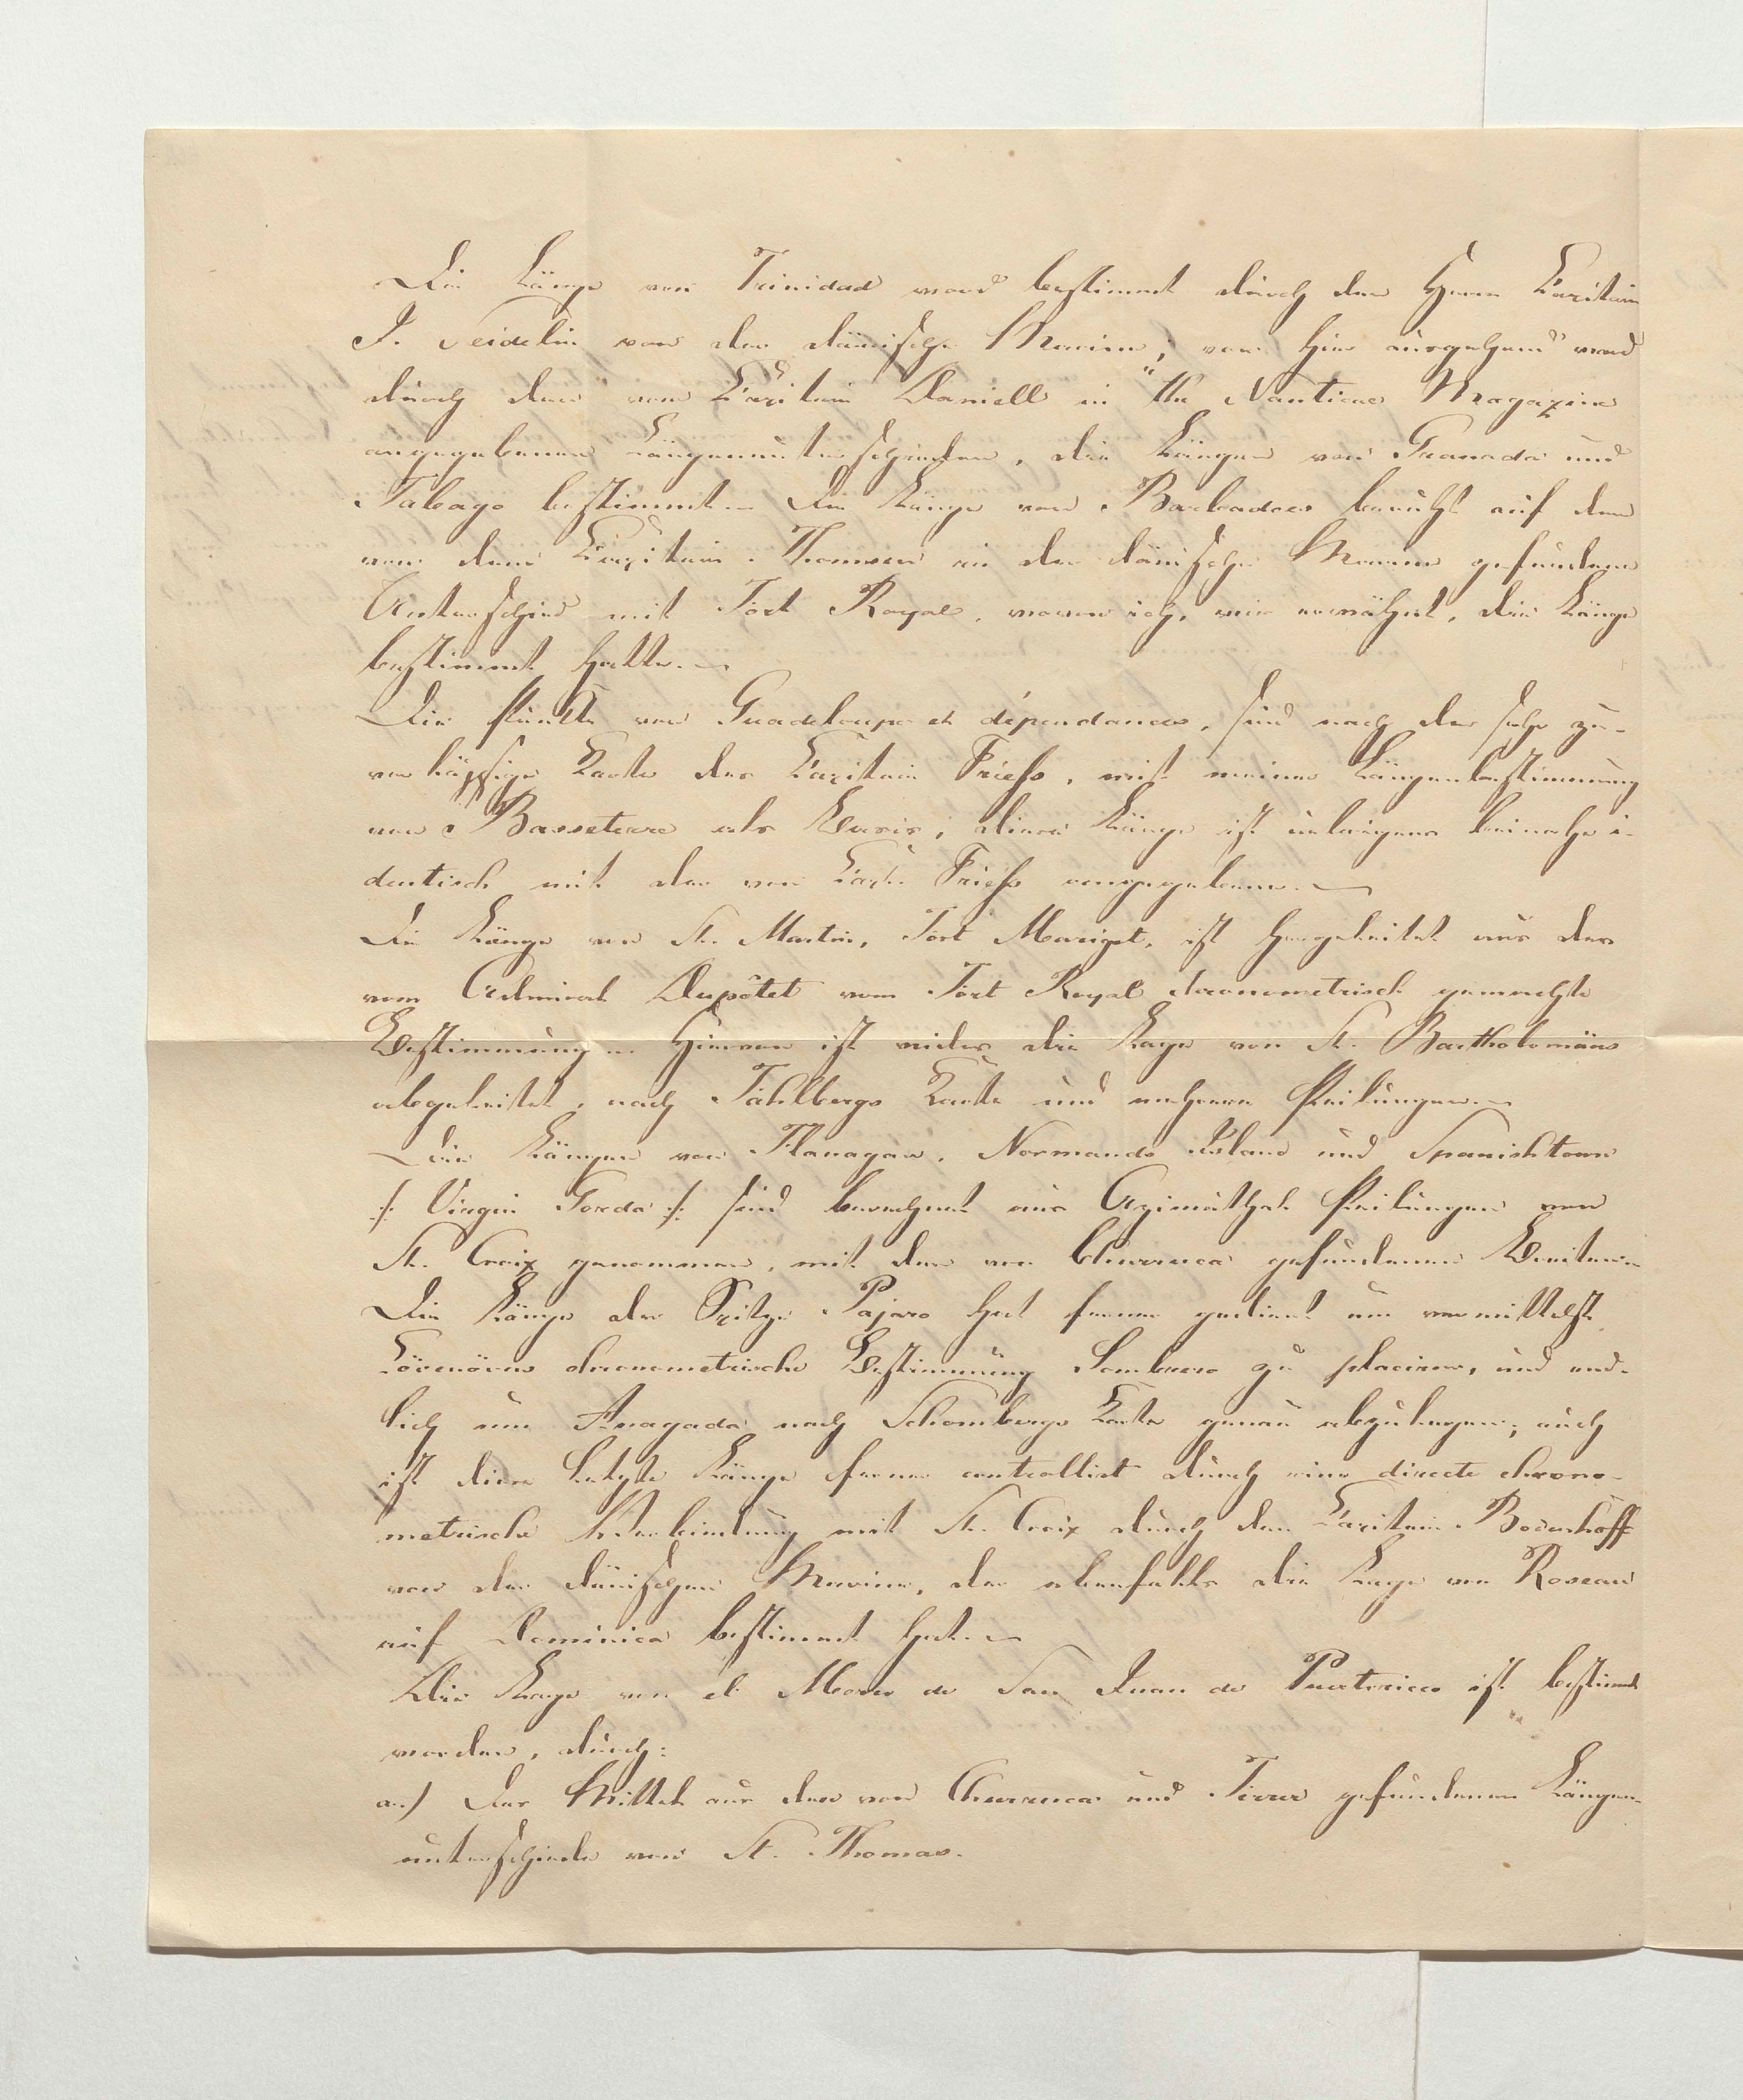 Die Länge von Trinidad ward bestimmt durch den Herrn Capitain
J. Seidelin von der dänische Marine; von hier ausgehend ward
durch den vom Capitain Daniell in "the Nautical Magazine
angegebenen Längenunterschieden, die Längen von Granada und
Tabago bestimmt. Die Länge von Barbadoes beruht auf den
von dem Capitain Thomsen in der dänische Marine gefundene
Unterschied mit Fort Royal, wovon ich, wie erwähnt, die Länge
bestimmt hatte.
Die Punkte von Guadeloupe et dépendances, sind nach der sehr zu-
verläßige Karte des Capitain Friess, mit meiner Längenbestimmung
von Basseterre als Basis; diese Länge ist übrigens beinahe i-
dentisch mit der von Capt. Friess angegebene.
Die Länge von St. Martin, Fort Marigot, ist hergeleitet aus der
vom Admiral Dupôtet vom Fort Royal chronometrisch gemachte
Bestimmung. Hiervon ist wieder die Lage von St. Bartholomäus
abgeleitet, nach Fahlbergs Karte und mehrere Peilungen.
Die Längen von Flanagan, Normands Island und Spanishtown
/: Virgin Gorda :/ sind berechnet aus Azimuthal Peilungen von
St. Croix genommen, mit den von Churruca gefundenen Breiten.
Die Länge der Spitze Pajaro hat ferner gedient um vermittelst
Lövenörns chronometrische Bestimmung Sombrero zu placiren, und end-
lich um Anagada nach Schomburgs Karte genau abzulegen; auch
ist diese letzte Länge ferner controllirt durch eine directe chrono-
metrische Verbindung mit St. Croix durch den Capitain Bodenhoff
von der dänischen Marine, der ebenfalls die Lage von Roseau
auf Dominica bestimmt hat.
Die Lage von el Morro de San Juan de Puertorico ist bestimmt
worden, durch:
a.) Das Mittel aus den von Churruca und Ferrer gefundenen Längen-
unterschiede von St. Thomas.